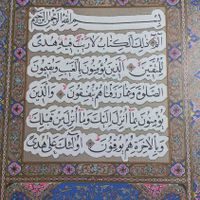 بِسْمِ اللَّهِ الرَّحْمَنِ الرَّحِيمِ
الم ذَلِكَ الْكِتَابُ لَا رَيْبَ فِيهِ هُدًى
لِلْمُتَّقِينَ الَّذِينَ يُؤْمِنُونَ بِالْغَيْبِ وَيُقِيمُونَ
الصَّلَاةَ وَمِمَّا رَزَقْنَاهُمْ يُنْفِقُونَ وَالَّذِينَ
يُؤْمِنُونَ بِمَا أُنْزِلَ إِلَيْكَ وَمَا أُنْزِلَ مِنْ قَبْلِكَ
وَبِالْآخِرَةِ هُمْ يُوقِنُونَ أُولَئِكَ عَلَى هُدًى